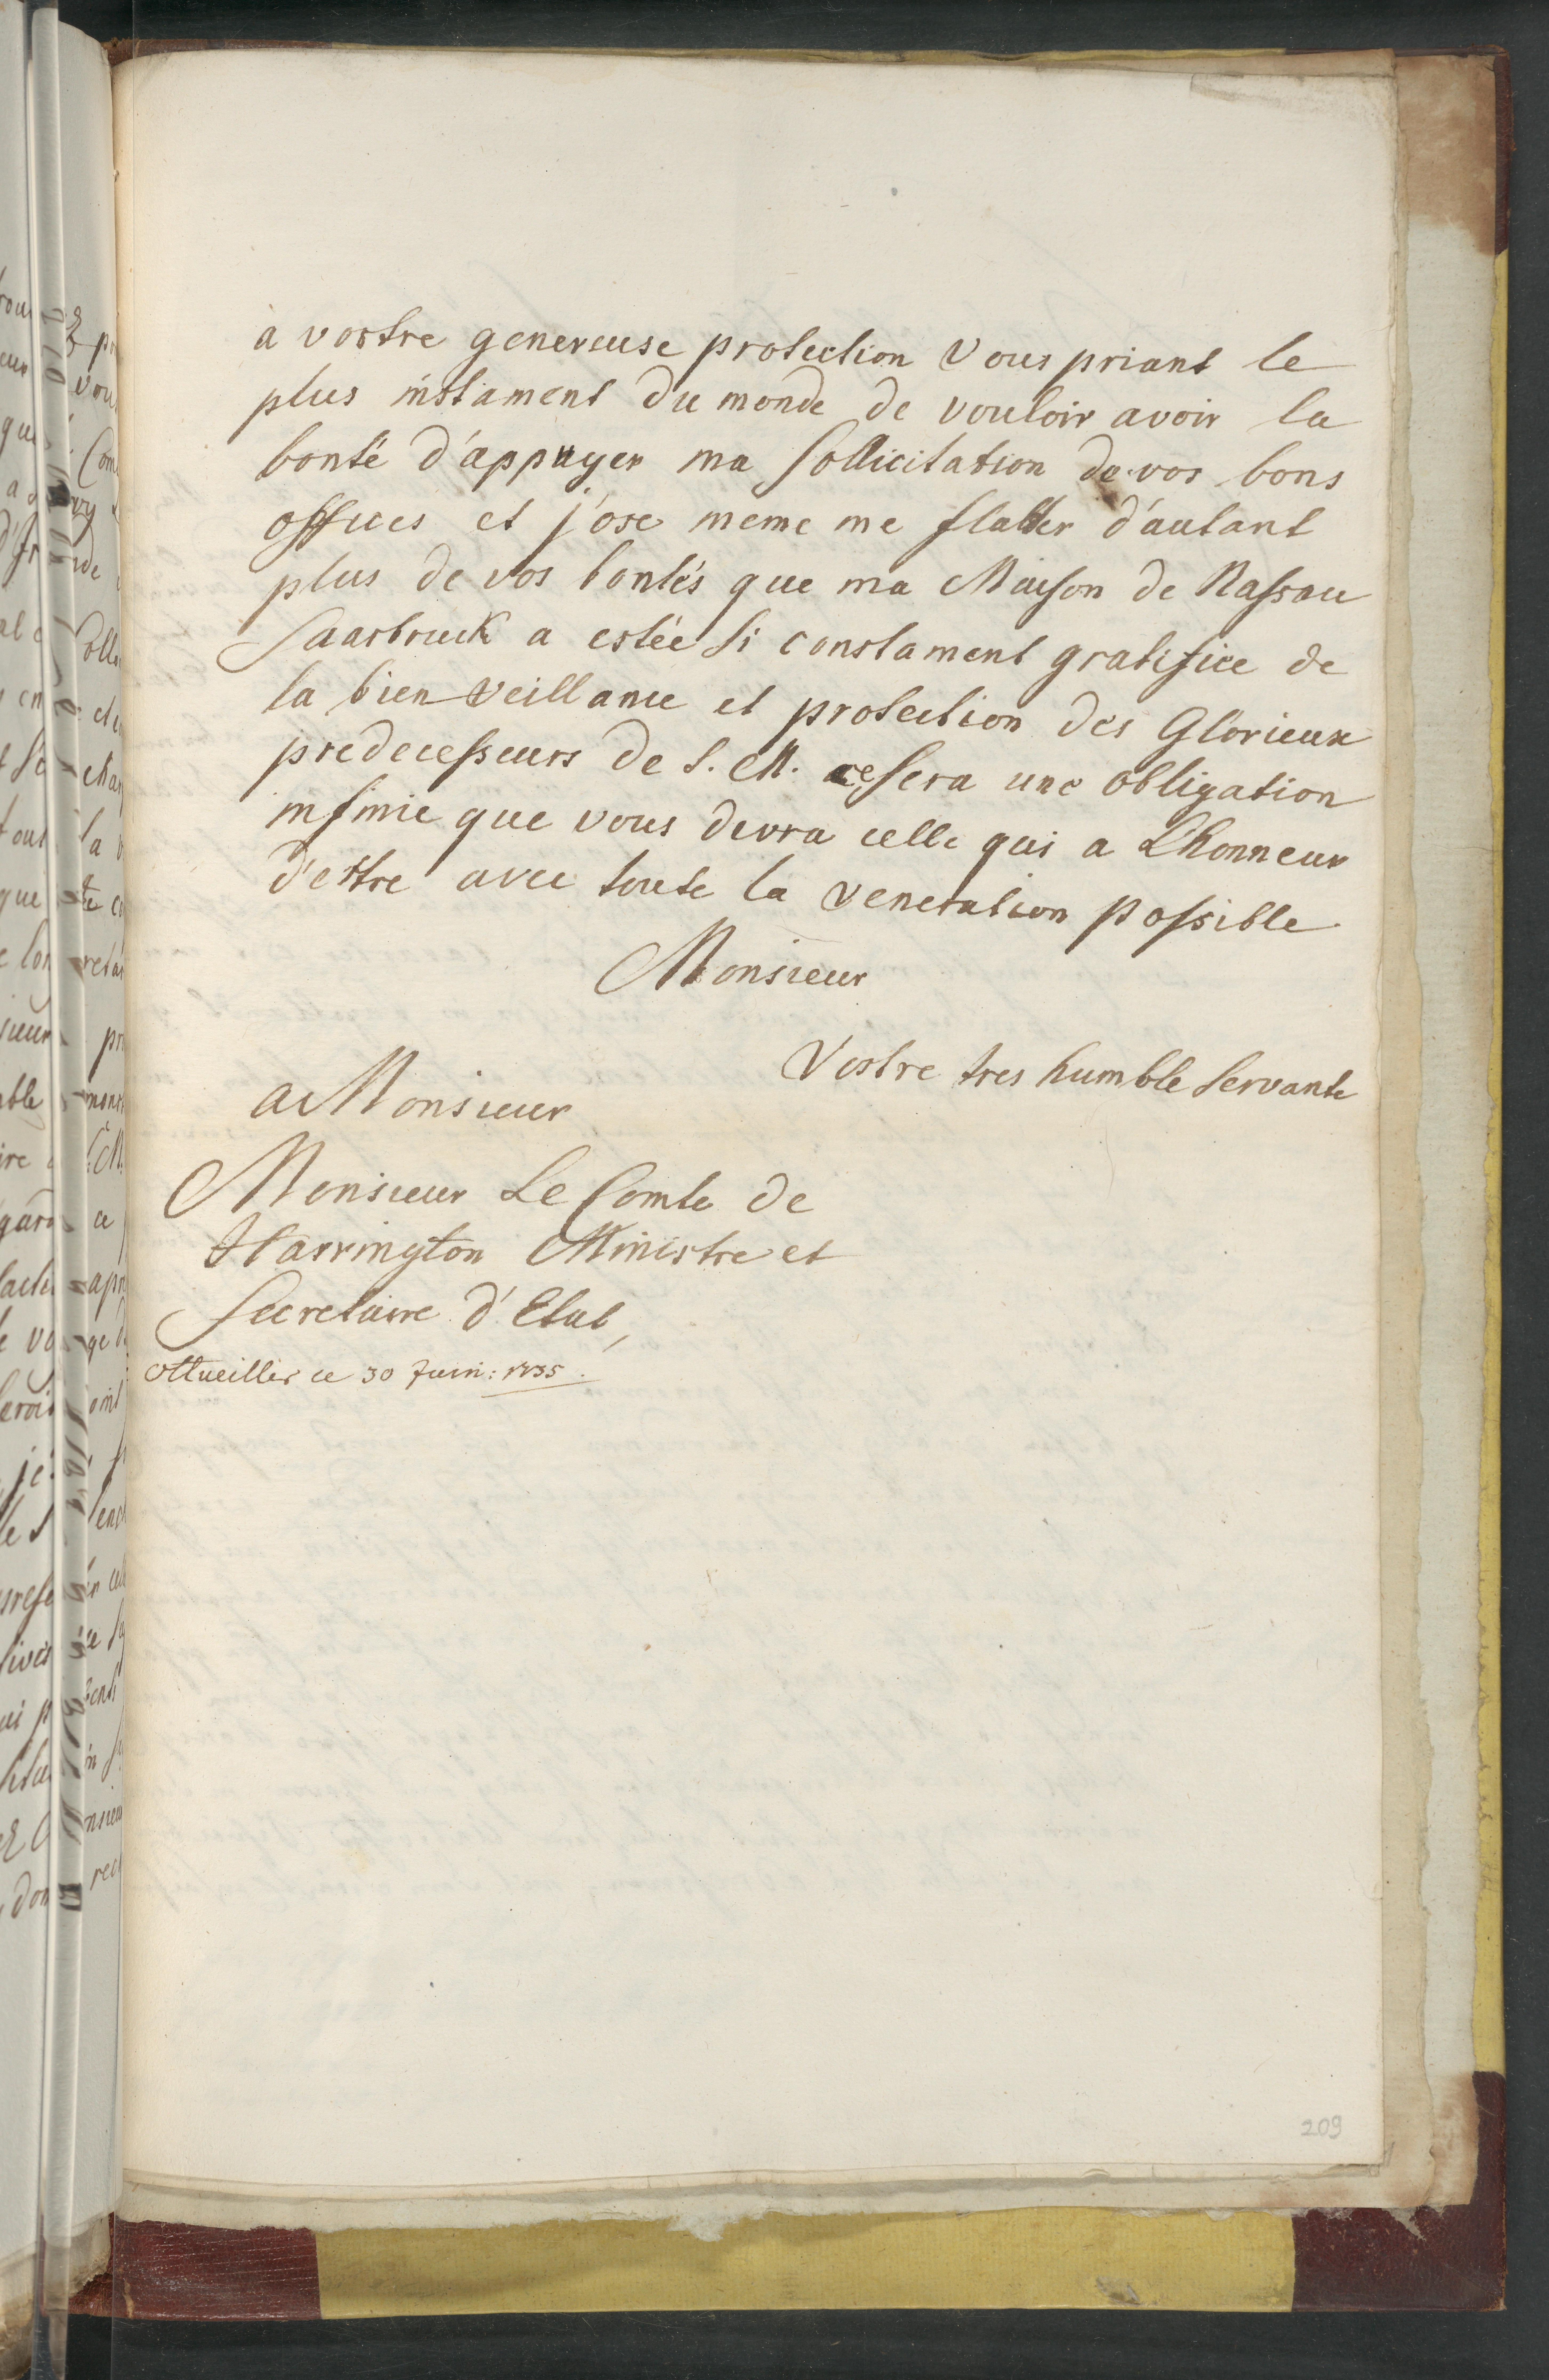 a vostre genereuse protection vous priant le
plus instament du monde de vouloir avoir la
bonté d'appuyer ma sollicitation de vos bons
offices et j'ose meme me flatter d'autant
plus de vos bontés que ma Maison de Nassau
Saarbruck a estée si constament gratifiee de
la bien veillance et protection des Glorieux
predecesseurs de S. M. ce sera une obligation
infinie que vous devra celle qui a L'honneur
d'estre avec toute la veneration possible
Monsieur
Vostre tres humble servante
a Monsieur
Monsieur Le Comte de
Harrington Ministre et
Secretaire d'Etat,
Ottweiller ce 30 Juin: 1735.
209